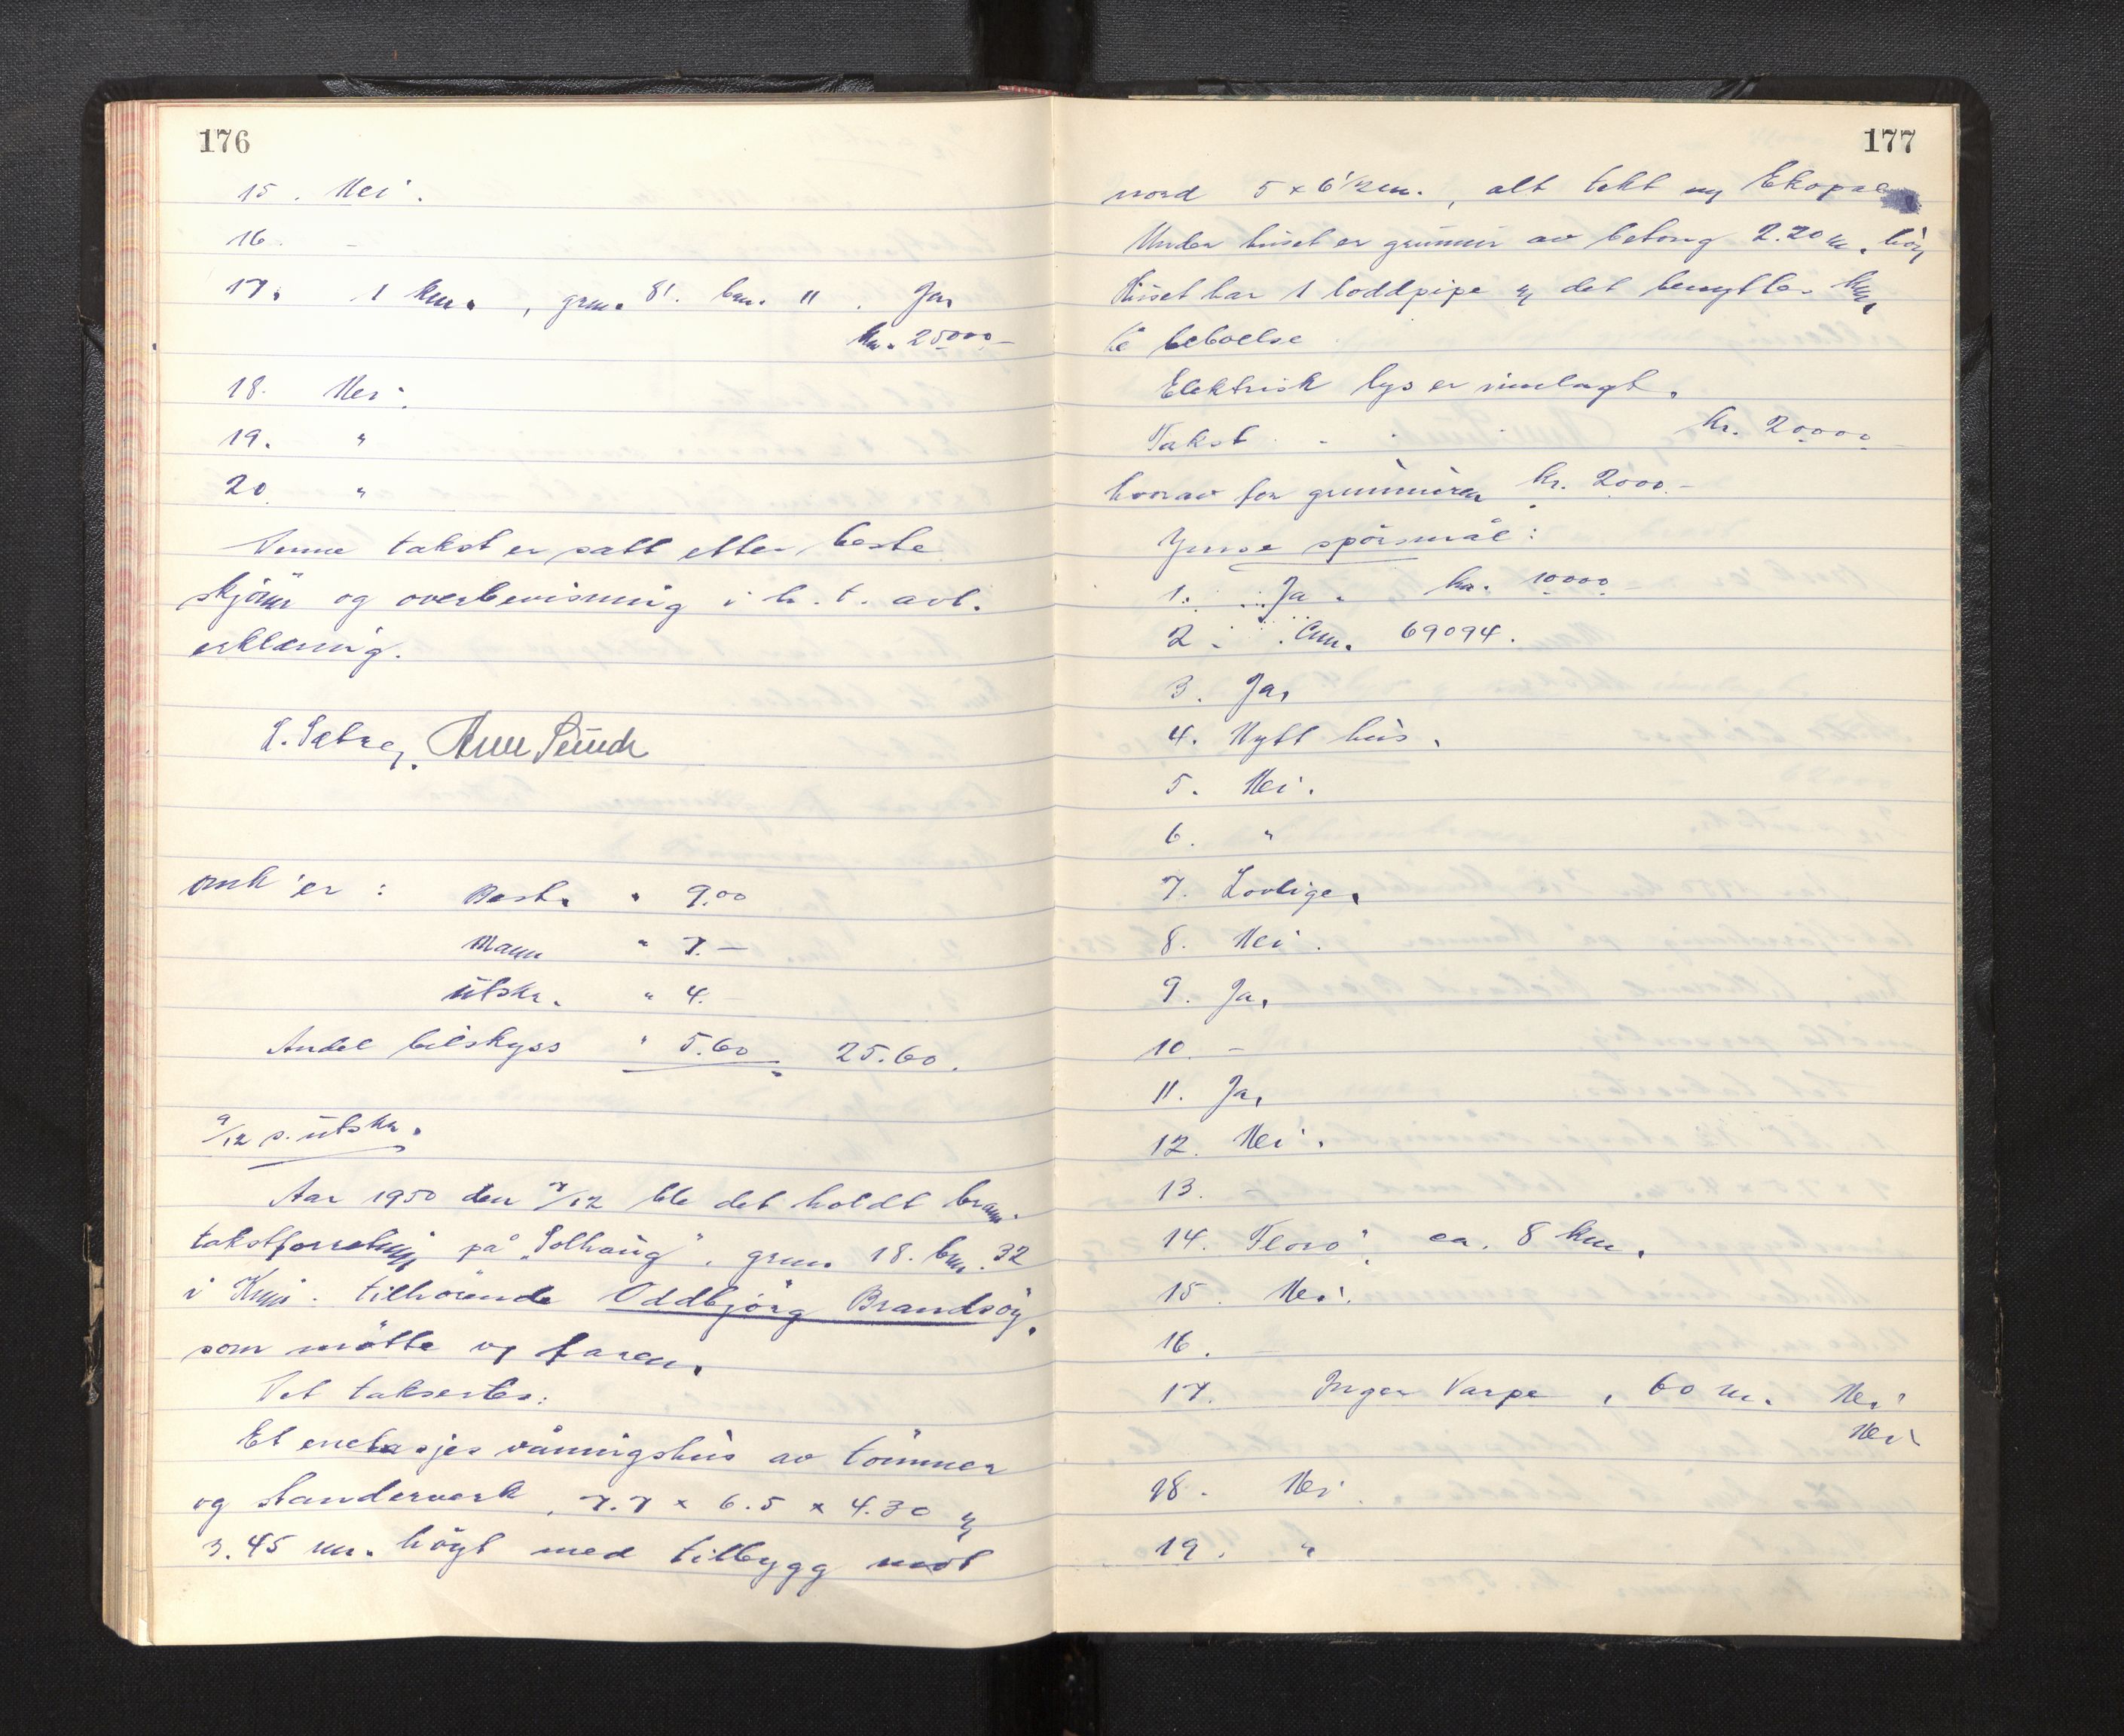 176
15. Nei.
16. -
17. 1 km., grm. 81. brn. 11. Ja,
kr. 25000.-
18. Nei.
19. "
20. "
Denne takst er satt etter beste
skjönn og overbevisning i h. t. avl.
erklæring.
S. Sætre,
omk'er :
Best. " 9.00
Mann " 7.-
Utskr. " 4.-
Andel bilskyss " 5.60 25.60.
9/12 s. utskr.
Aar 1950 den 7/12 ble det holdt brann-
takstforretning på "Solhaug", grn. 18. brn. 32
i Kinn. tilhörende Oddbjörg Brandsöy,
som mötte og faren.
Det taksertes:
Et enetasjes våningshus av tömmer
og standerverk, 7.7 x 6.5 x 4.30 og
3.45 m. höyt med tilbygg mot
177
nord 5 x 6 1/2 m., alt tekt m/
Under huset er grunnmur av betong 2.20 m. höy,
Huset har 1 loddpipe og det benyttes kun,
til beboelse
Elektrisk lys er innlagt.
Takst kr. 20000.-
hvorav for grunnmuren kr. 2000.-
Ymse spörsmål:
1. Ja. kr. 10000.-
2. 69094.
3. Ja,
4. Nytt hus.
5. Nei.
6. "
7. Lovlige.
8. Nei.
9. Ja,
10. -
11. Ja,
12. Nei.
13. -
14. Florö, ca. 8 km.
15. Nei.
16. -
17. Inger Varpe, 60 m. Nei
Nei
18. Nei
19. "